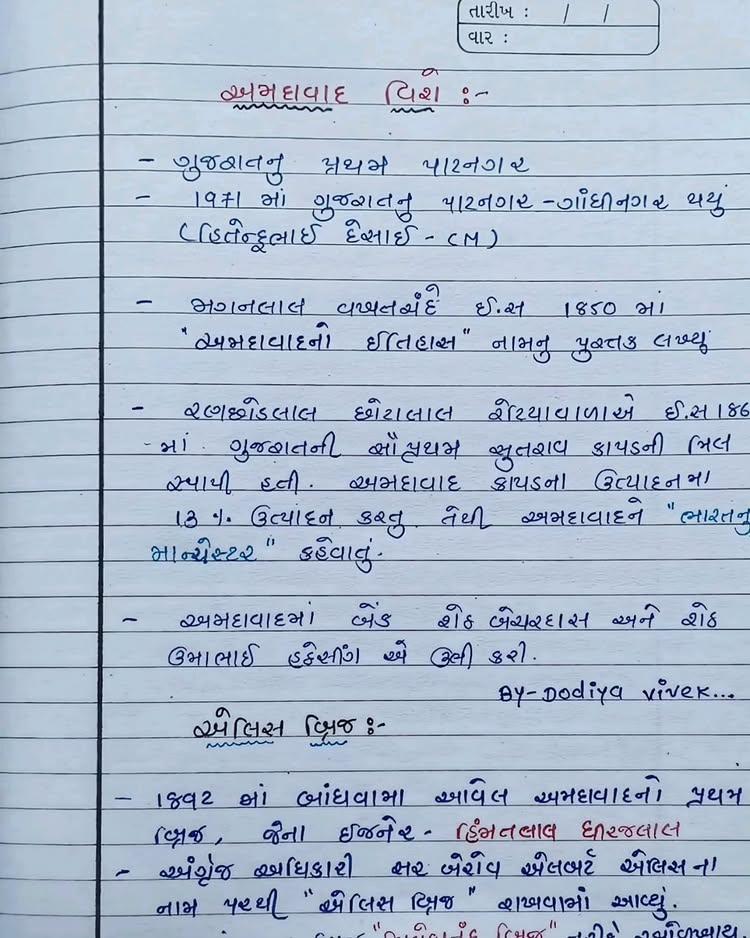 તારીખ : / /
વાર :
અમદાવાદ વિશે :-
- ગુજરાતનુ પ્રથમ પાટનગર
- 1971 માં ગુજરાતનુ પાટનગર - ગાંધીનગર થયું
(હિતેન્દ્રભાઈ દેસાઈ - CM)
- મગનલાલ વખતચંદે ઈ.સ 1850 માં
"અમદાવાદનો ઈતિહાસ" નામનુ પુસ્તક લખ્યું
- રણછોડલાલ છોટાલાલ શેટયાવાળાએ ઈ.સ 186
- માં ગુજરાતની સૌપ્રથમ સુતરાવ કાપડની મિલ
સ્થાપી હતી. અમદાવાદ કાપડના ઉત્પાદનમા
13 %. ઉત્પાદન કરતુ તેથી અમદાવાદને "ભારતનુ
માન્ચેસ્ટર" કહેવાતું.
- અમદાવાદમાં બેંક શેઠ બેચરદાસ અને શેઠ
ઉમાભાઈ હકેસીંગ એ ઊભી કરી.
BY-Dodiya vivek...
એલિસ બ્રિજ :-
- 1892 માં બાંધવામા આવેલ અમદાવાદનો પ્રથમ
બ્રિજ, જેના ઈજનેર - હિંમતલાલ ધીરજલાલ
- અંગ્રેજ અધિકારી સર બેરોવ એલબર્ટ એલિસના
નામ પરથી "એલિસ બ્રિજ" રાખવામાં આવ્યું.
બ્રિજ"